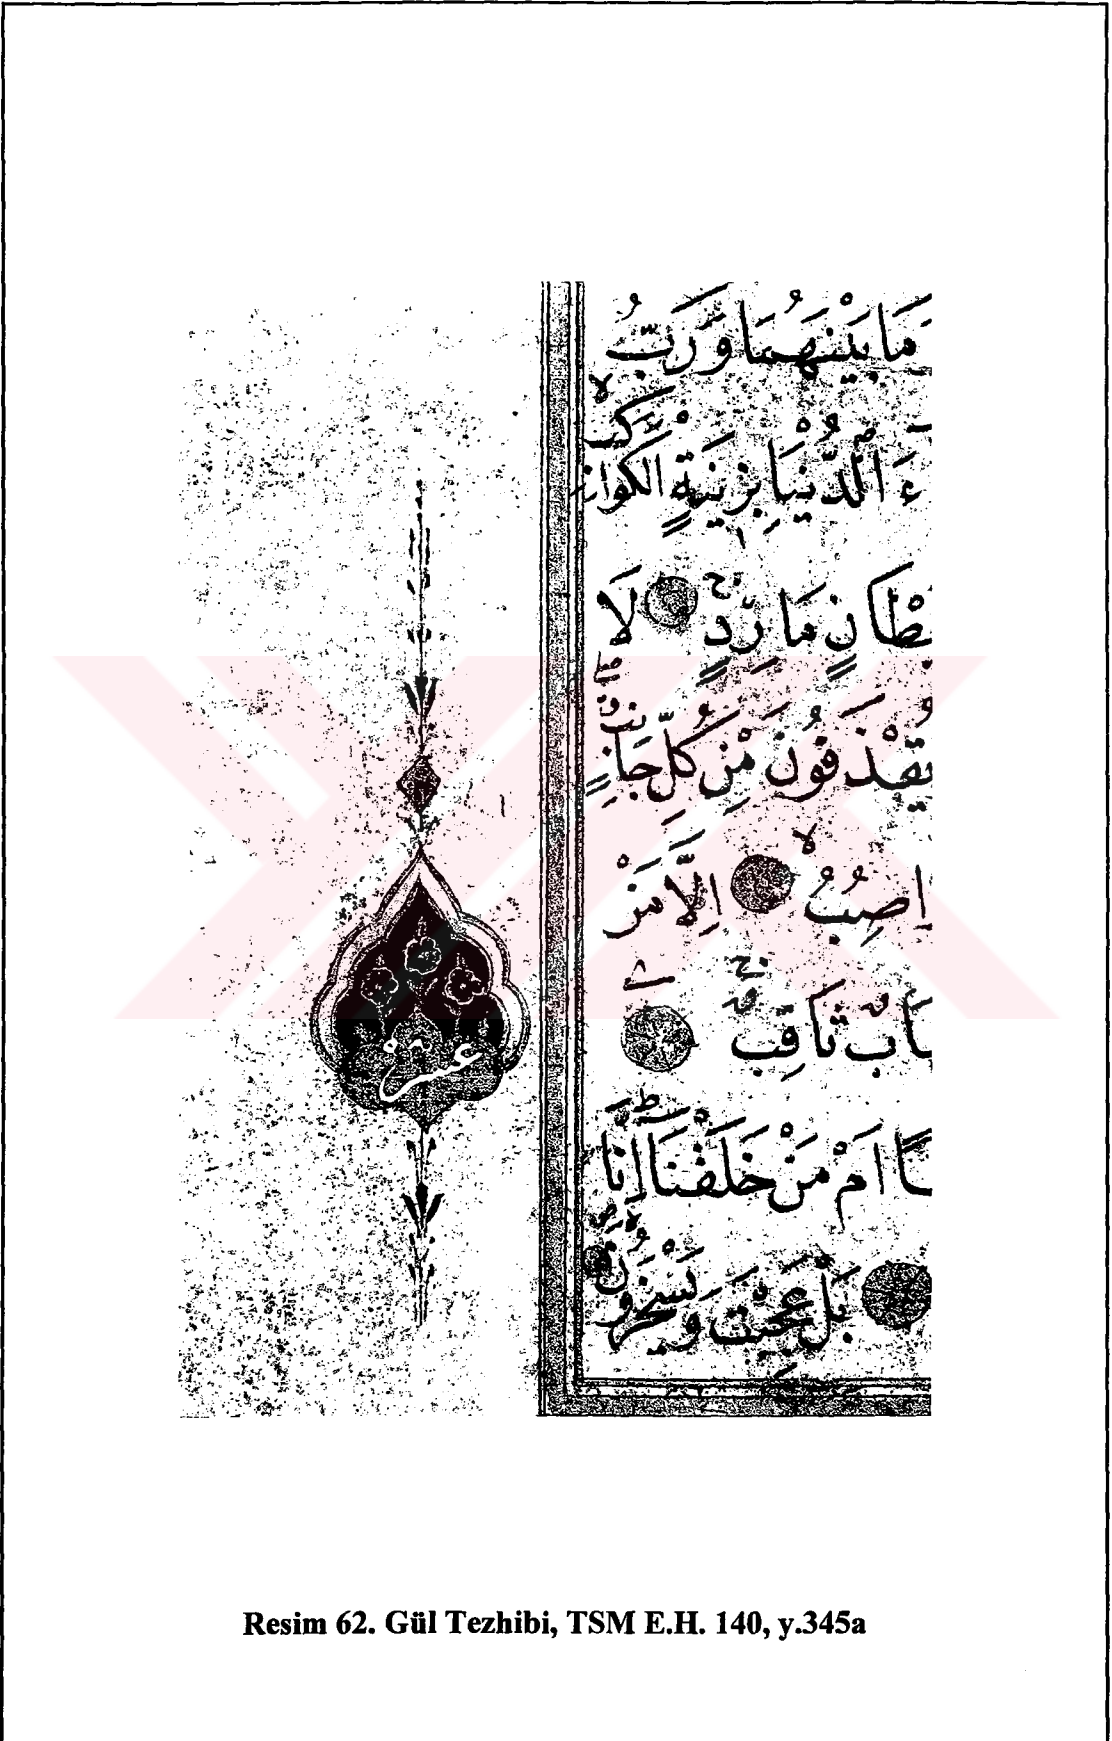 مَا بَيْنَهُمَا وَرَبُّ
ءَ الدُّنْيَا بِزِينَةٍ الْكَوَاكِبِ
طَانٍ مَارِدٍ لَا
يُقْذَفُونَ مِنْ كُلِّ جَانِبٍ
اصِبٌ اِلَّا مَنْ
هَابٌ ثَاقِبٌ
ـًا اَمْ مَنْ خَلَقْنَا اِنَّا
بَلْ عَجِبْتَ وَيَسْخَرُونَ
عشر
Resim 62. Gül Tezhibi, TSM E.H. 140, y.345a